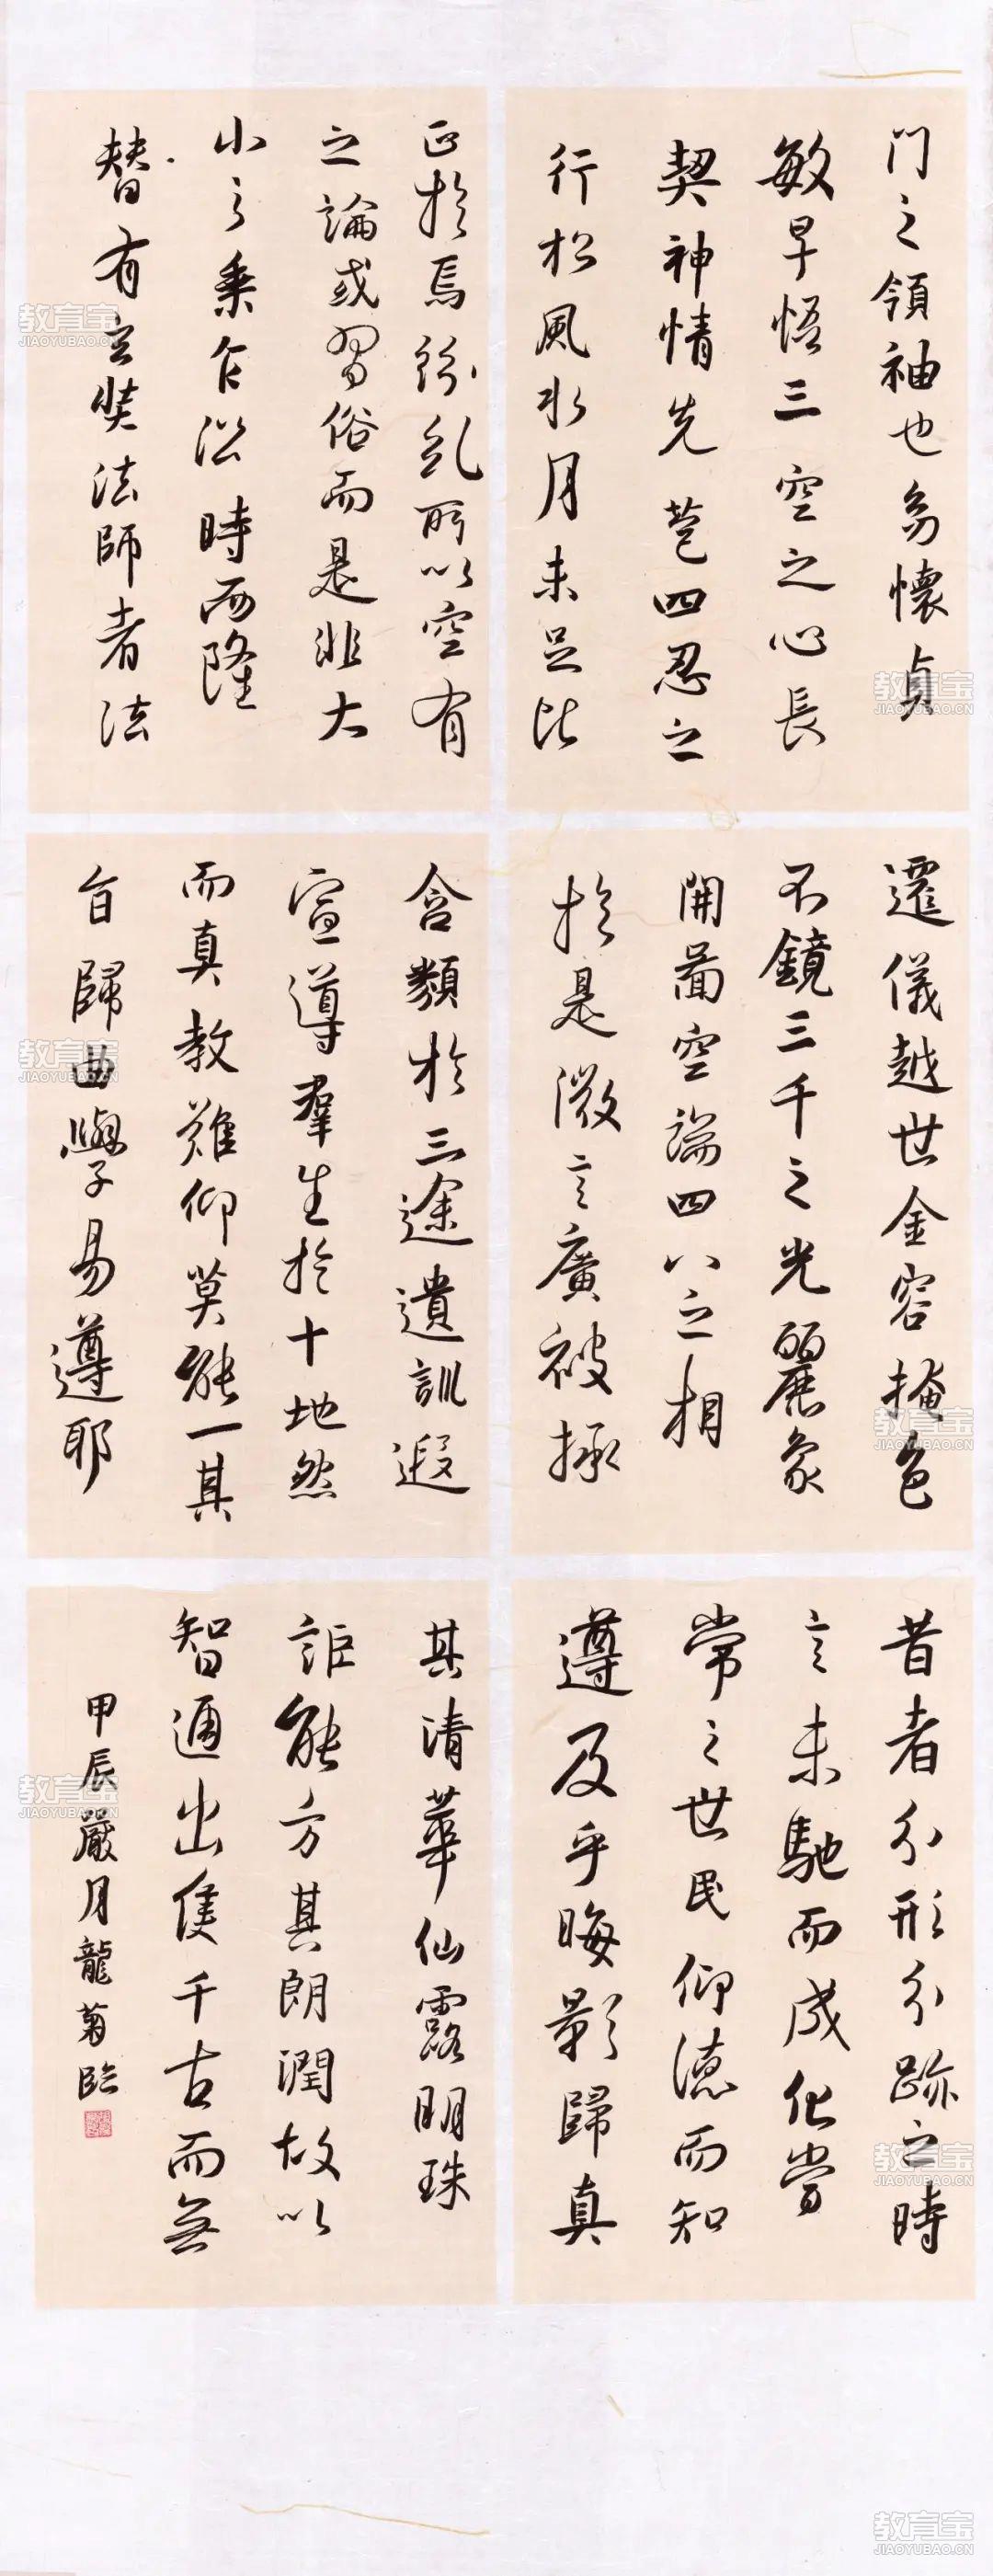 門之領袖也幼懷貞
敏早悟三空之心長
契神情先苞四忍之
行松風水月未足比
正於焉紛糺所以空有
之論或習俗而是非大
小之乘乍沿時而隆
替有玄奘法師者法
遷儀越世金容掩色
不鏡三千之光麗象
開圖空端四八之相
於是微言廣被拯
含類於三途遺訓遐
宣導羣生於十地然
而真教難仰莫能一其
旨歸曲學易遵耶
昔者分形分跡之時
言未馳而成化當
常之世民仰德而知
遵及乎晦影歸真
其清華仙露明珠
詎能方其朗潤故以
智通出隻千古而無
甲辰嚴月龍菊臨
教育宝
JIAOYUBAO.CN
教育宝
JIAOYUBAO.CN
教育宝
JIAOYUBAO.CN
教育宝
JIAOYUBAO.CN
教育宝
JIAOYUBAO.CN
教育宝
JIAOYUBAO.CN
教育宝
JIAOYUBAO.CN